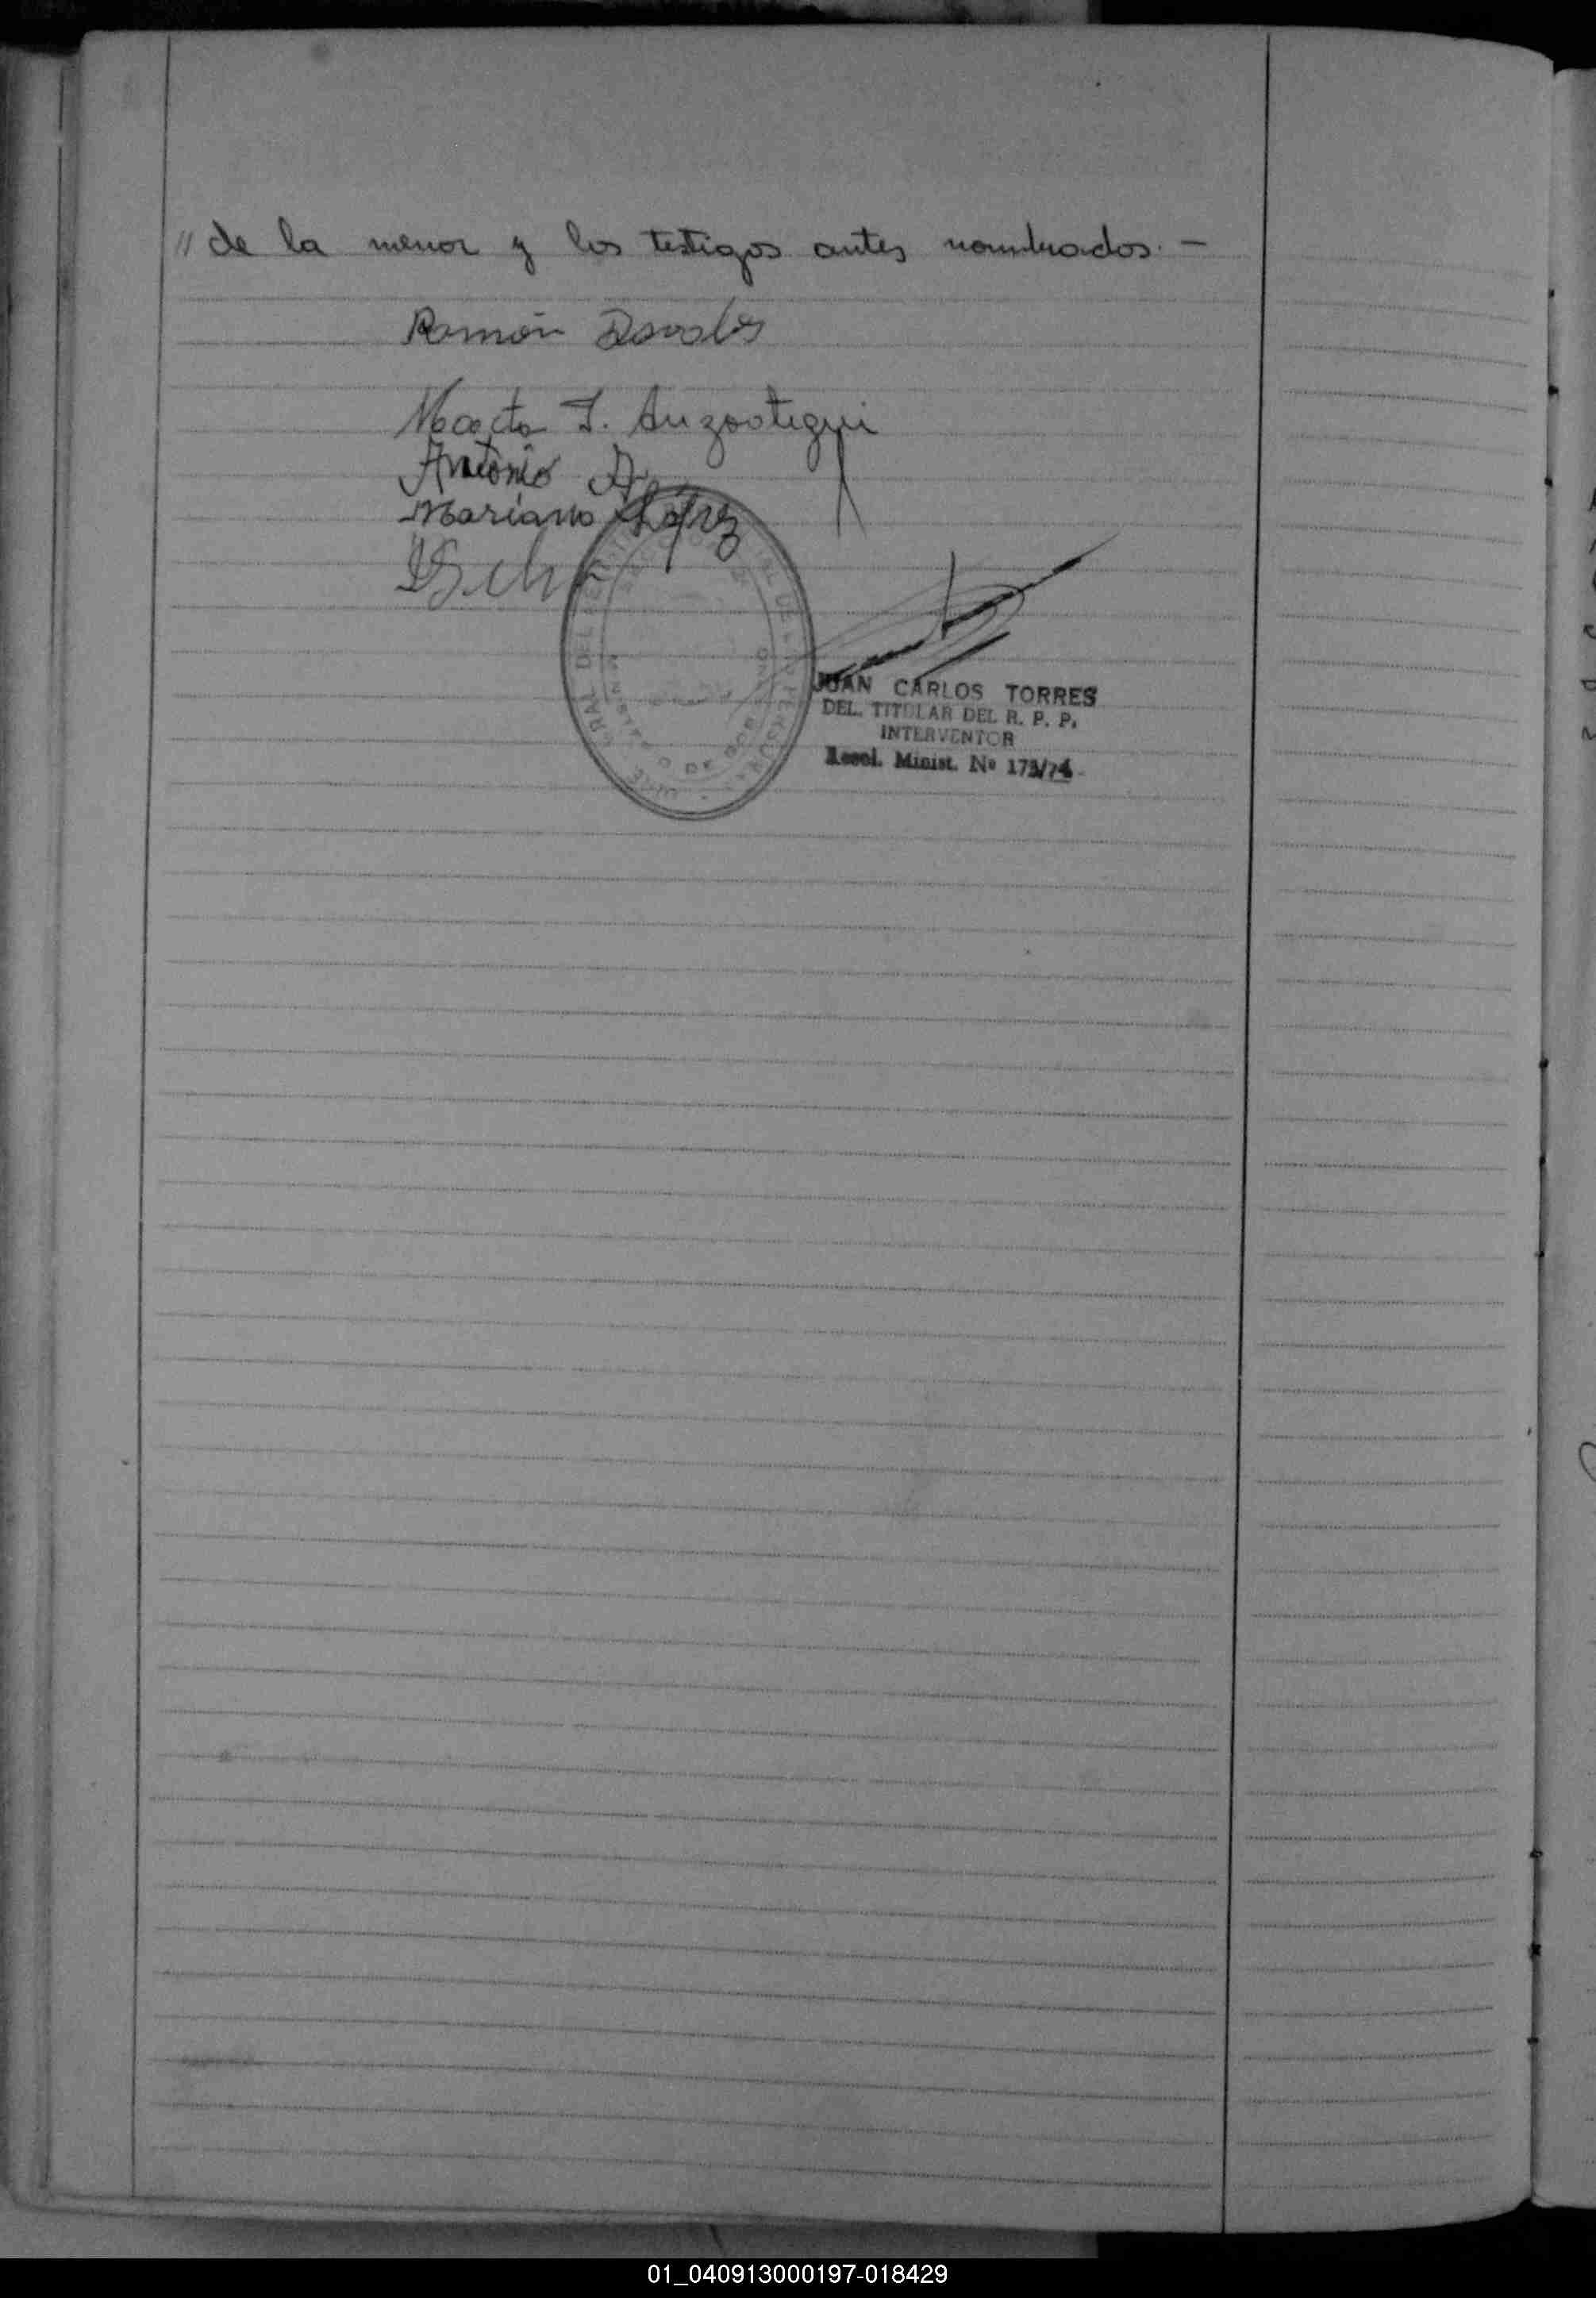 // de la menor y los testigos antes nombrados. -
Ramón Davalos
Marta I. Anzoategui
Antonio A.
Mariano López
JUAN CARLOS TORRES
DEL. TITULAR DEL R. P. P.
INTERVENTOR
Resol. Minist. Nº 173/74
01_040913000197-018429